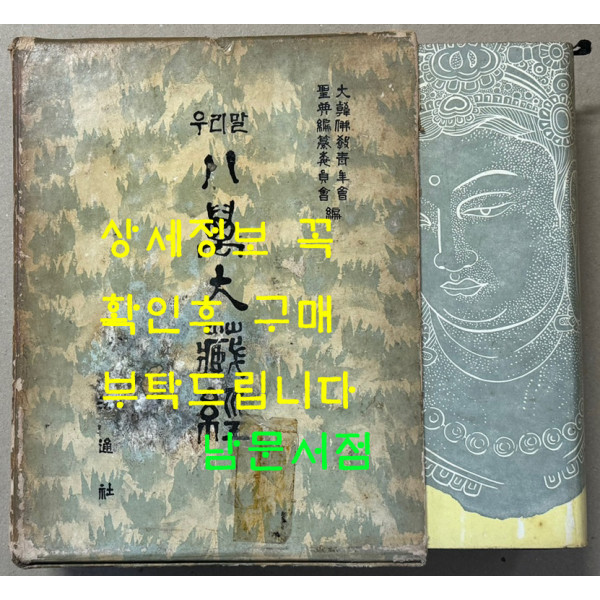 大韓佛敎靑年會
聖典編纂委員會 編
우리말
八萬大藏經
通社
상세정보 꼭
확인후 구매
부탁드립니다
남문서점